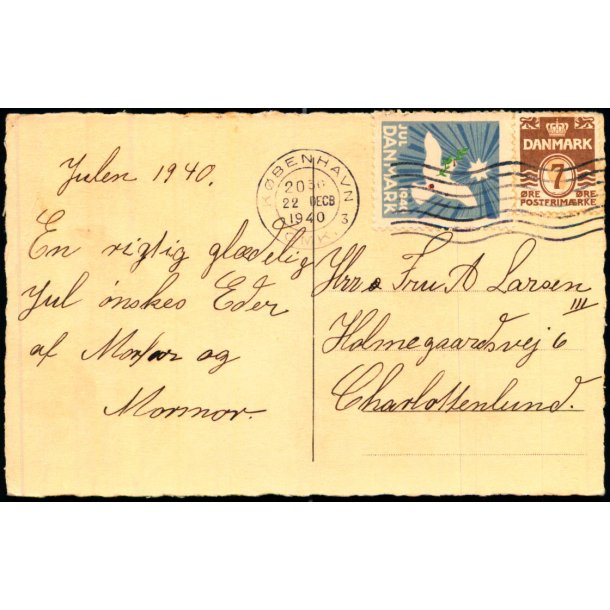 Julen 1940.
En rigtig glædelig
Jul ønskes Eder
af Morfar og
Mormor.
KØBENHAVN
2030
22 DECB
1940
3
DANMK.
JUL
DANMARK
1940
DANMARK
7
ØRE ØRE
POSTFRIMÆRKE
Hrr & Fru A Larsen
Holmegaardsvej 6 III
Charlottenlund.